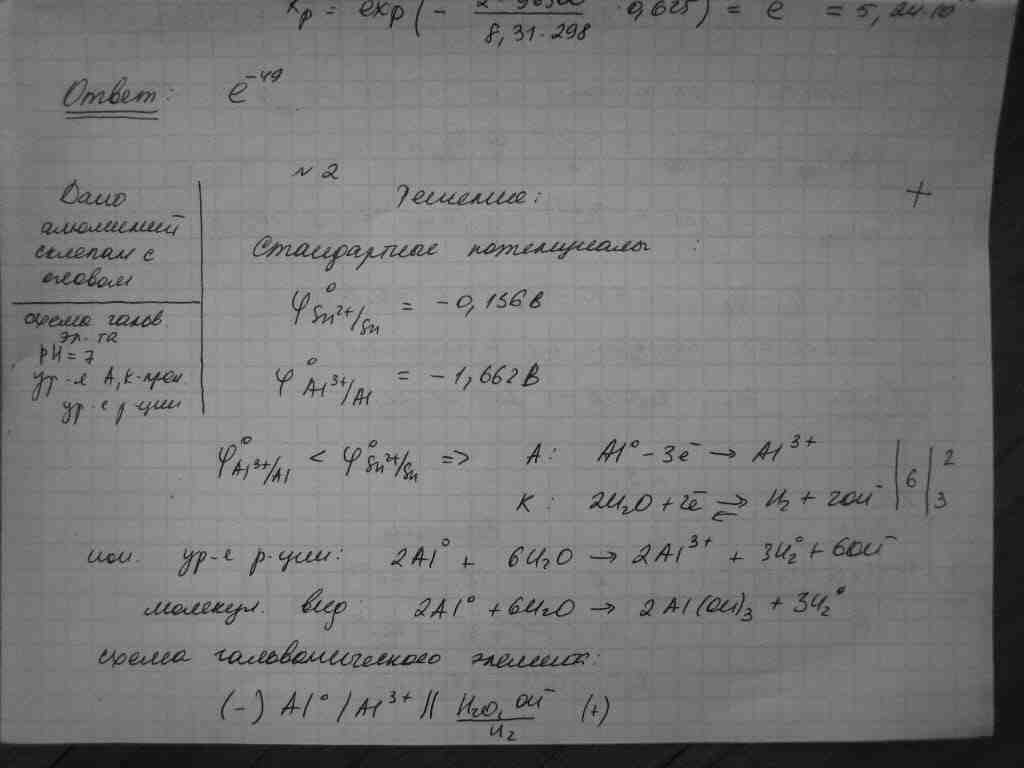 Kp = exp(- 2·96500 / 8,31·298 · 0,625) = e = 5,24·10
Ответ: e⁻⁴⁹
N2
Дано
алюминий
склепан с
оловом
схема галов.
эл-та
pH = 7
ур-я А, К-проц.
ур-е р-ции
Решение: +
Стандартные потенциалы :
φ°Sn²⁺/Sn = -0,136В
φ°Al³⁺/Al = -1,662В
φ°Al³⁺/Al < φ°Sn²⁺/Sn => А: Al° - 3ē → Al³⁺ | 6 | 2
К: 2H₂O + 2ē ⇄ H₂ + 2OH⁻ 3
ион. ур-е р-ции: 2Al° + 6H₂O → 2Al³⁺ + 3H₂° + 6OH⁻
молекул. вид: 2Al° + 6H₂O → 2Al(OH)₃ + 3H₂°
схема гальванического элемента:
(-) Al° / Al³⁺ || H₂O, OH⁻ / H₂ (+)